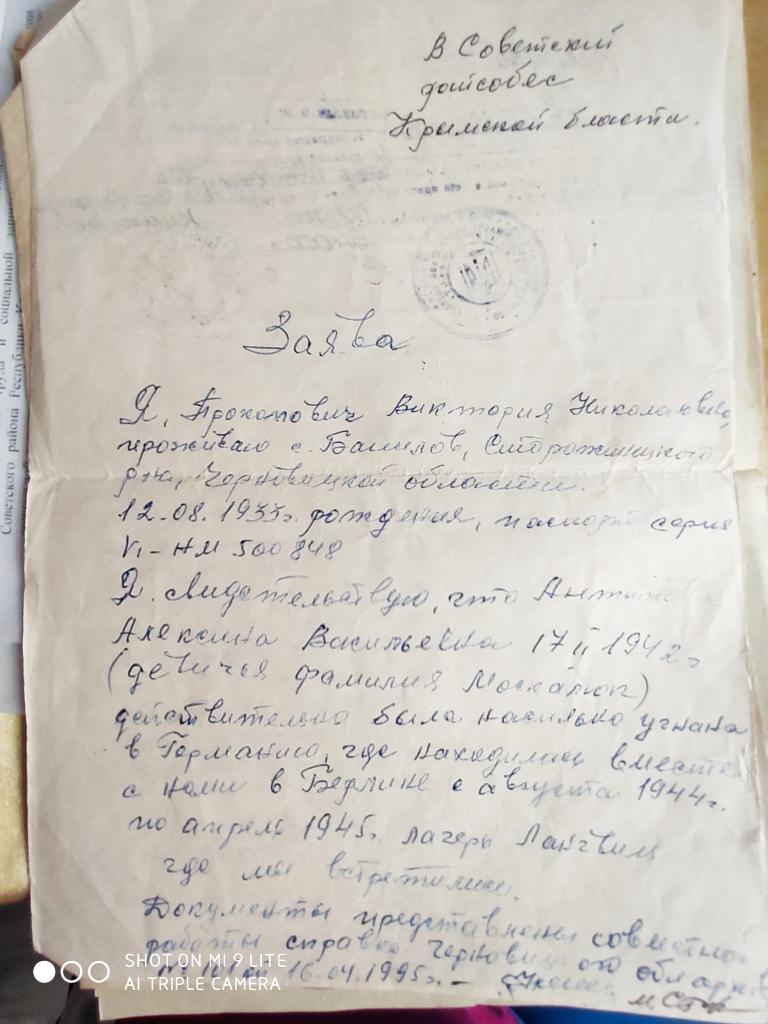 В Советский
райсобес
Крымской бласти.
Заява
Я, Прокопович Виктория Николаевна,
проживаю с. Банилов, Сторожинецкого
р-на, Черновицкой области.
12.08.1933г. рождения, паспорт серия
VI-НМ 500848
Я свидетельствую, что
Алексина Васильевна 17 II 1942г
(девичья фамилия Москалюк)
действительно была насильно угнана
в Германию, где находилась вместе
с нами в Берлине с августа 1944г.
по апрель 1945г. лагерь Лангвиц
где мы встретились.
Документы представлены совместной
работы справка Черновицкого обл
16-04.1995г. –
SHOT ON MI 9 LITE
AI TRIPLE CAMERA
труда и социальной
Советского района Республики